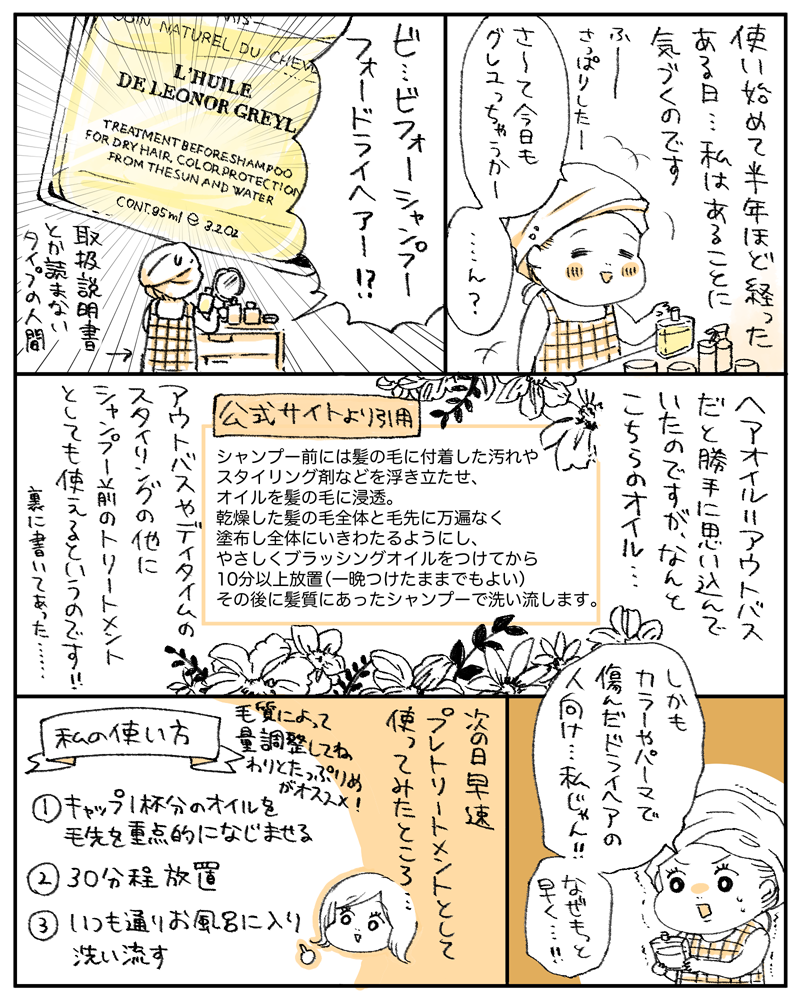 使い始めて半年ほど経った
ある日…私はあることに
気づくのです
ふーー
さっぱりしたー
さ〜て今日も
グレユっちゃうかー
……ん?
ビ…ビフォーシャンプー
フォードライヘアー!?
SOIN NATUREL DU CHEV
L'HUILE
DE LEONOR GREYL
TREATMENT BEFORE SHAMPOO
FOR DRY HAIR, COLOR PROTECTION
FROM THE SUN AND WATER
CONT.95ml ⊖ 3.2Oz
取扱説明書
とか読まない
タイプの人間
ヘアオイル=アウトバス
だと勝手に思い込んで
いたのですが、なんと
こちらのオイル…
公式サイトより引用
シャンプー前には髪の毛に付着した汚れや
スタイリング剤などを浮き立たせ、
オイルを髪の毛に浸透。
乾燥した髪の毛全体と毛先に万遍なく
塗布し全体にいきわたるようにし、
やさしくブラッシングオイルをつけてから
10分以上放置(一晩つけたままでもよい)
その後に髪質にあったシャンプーで洗い流します。
アウトバスやデイタイムの
スタイリングの他に
シャンプー前のトリートメント
としても使えるというのです!!
裏に書いてあった……
しかも
カラーやパーマで
傷んだドライヘアの
人向け…私じゃん!!
なぜもっと
早く…!!
次の日早速
プレトリートメントとして
使ってみたところ…
私の使い方
毛質によって
量調整してね
わりとたっぷりめ
がオススメ!
① キャップ1杯分のオイルを
毛先を重点的になじませる
② 30分程放置
③ いつも通りお風呂に入り
洗い流す